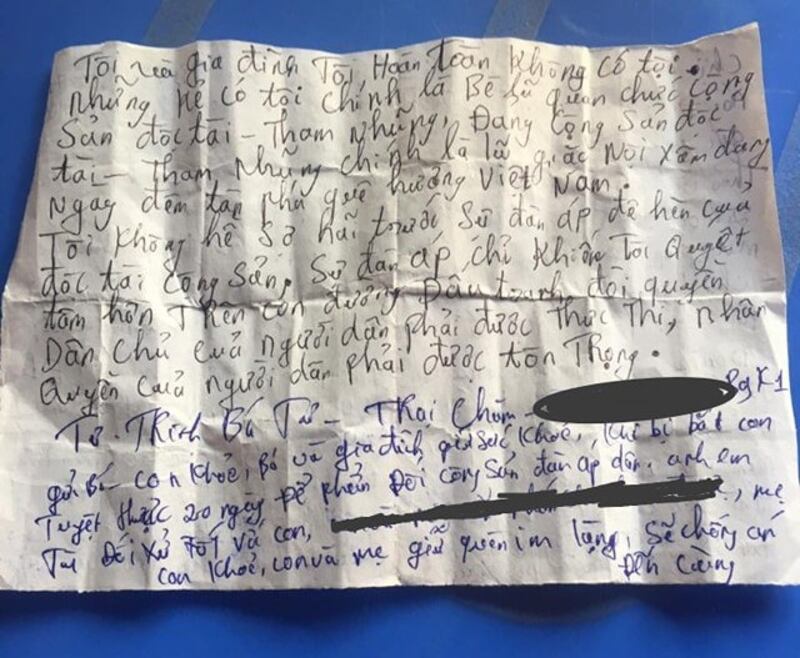 Tôi và gia đình Tôi Hoàn toàn không có tội.
những kẻ có tội chính là Bè lũ quan chức cộng
Sản độc tài - Tham nhũng, Đảng cộng sản độc
tài - Tham nhũng chính là lũ giặc Nội xâm đang
ngày đêm tàn phá quê hương Việt Nam.
Tôi không hề Sợ hãi trước Sự đàn áp đê hèn của
độc tài cộng Sản. Sự đàn áp chỉ khiến Tôi Quyết
tâm hơn Trên con đường Đấu tranh đòi quyền
Dân chủ của người dân phải được thực Thi, nhân
Quyền của người dân phải được tôn Trọng.
Từ. Trịnh Bá Tư - Trại Chăm - K1
gửi Bố - con khoẻ, Bố và gia đình giữ sức khoẻ, khi bị bắt con
Tuyệt thực 20 ngày Để phản Đối cộng sản đàn áp dân. anh em
Tù Đối xử Tốt với con, mẹ
con khoẻ, con và mẹ giữ quyền im lặng, sẽ chống án
Đến cùng